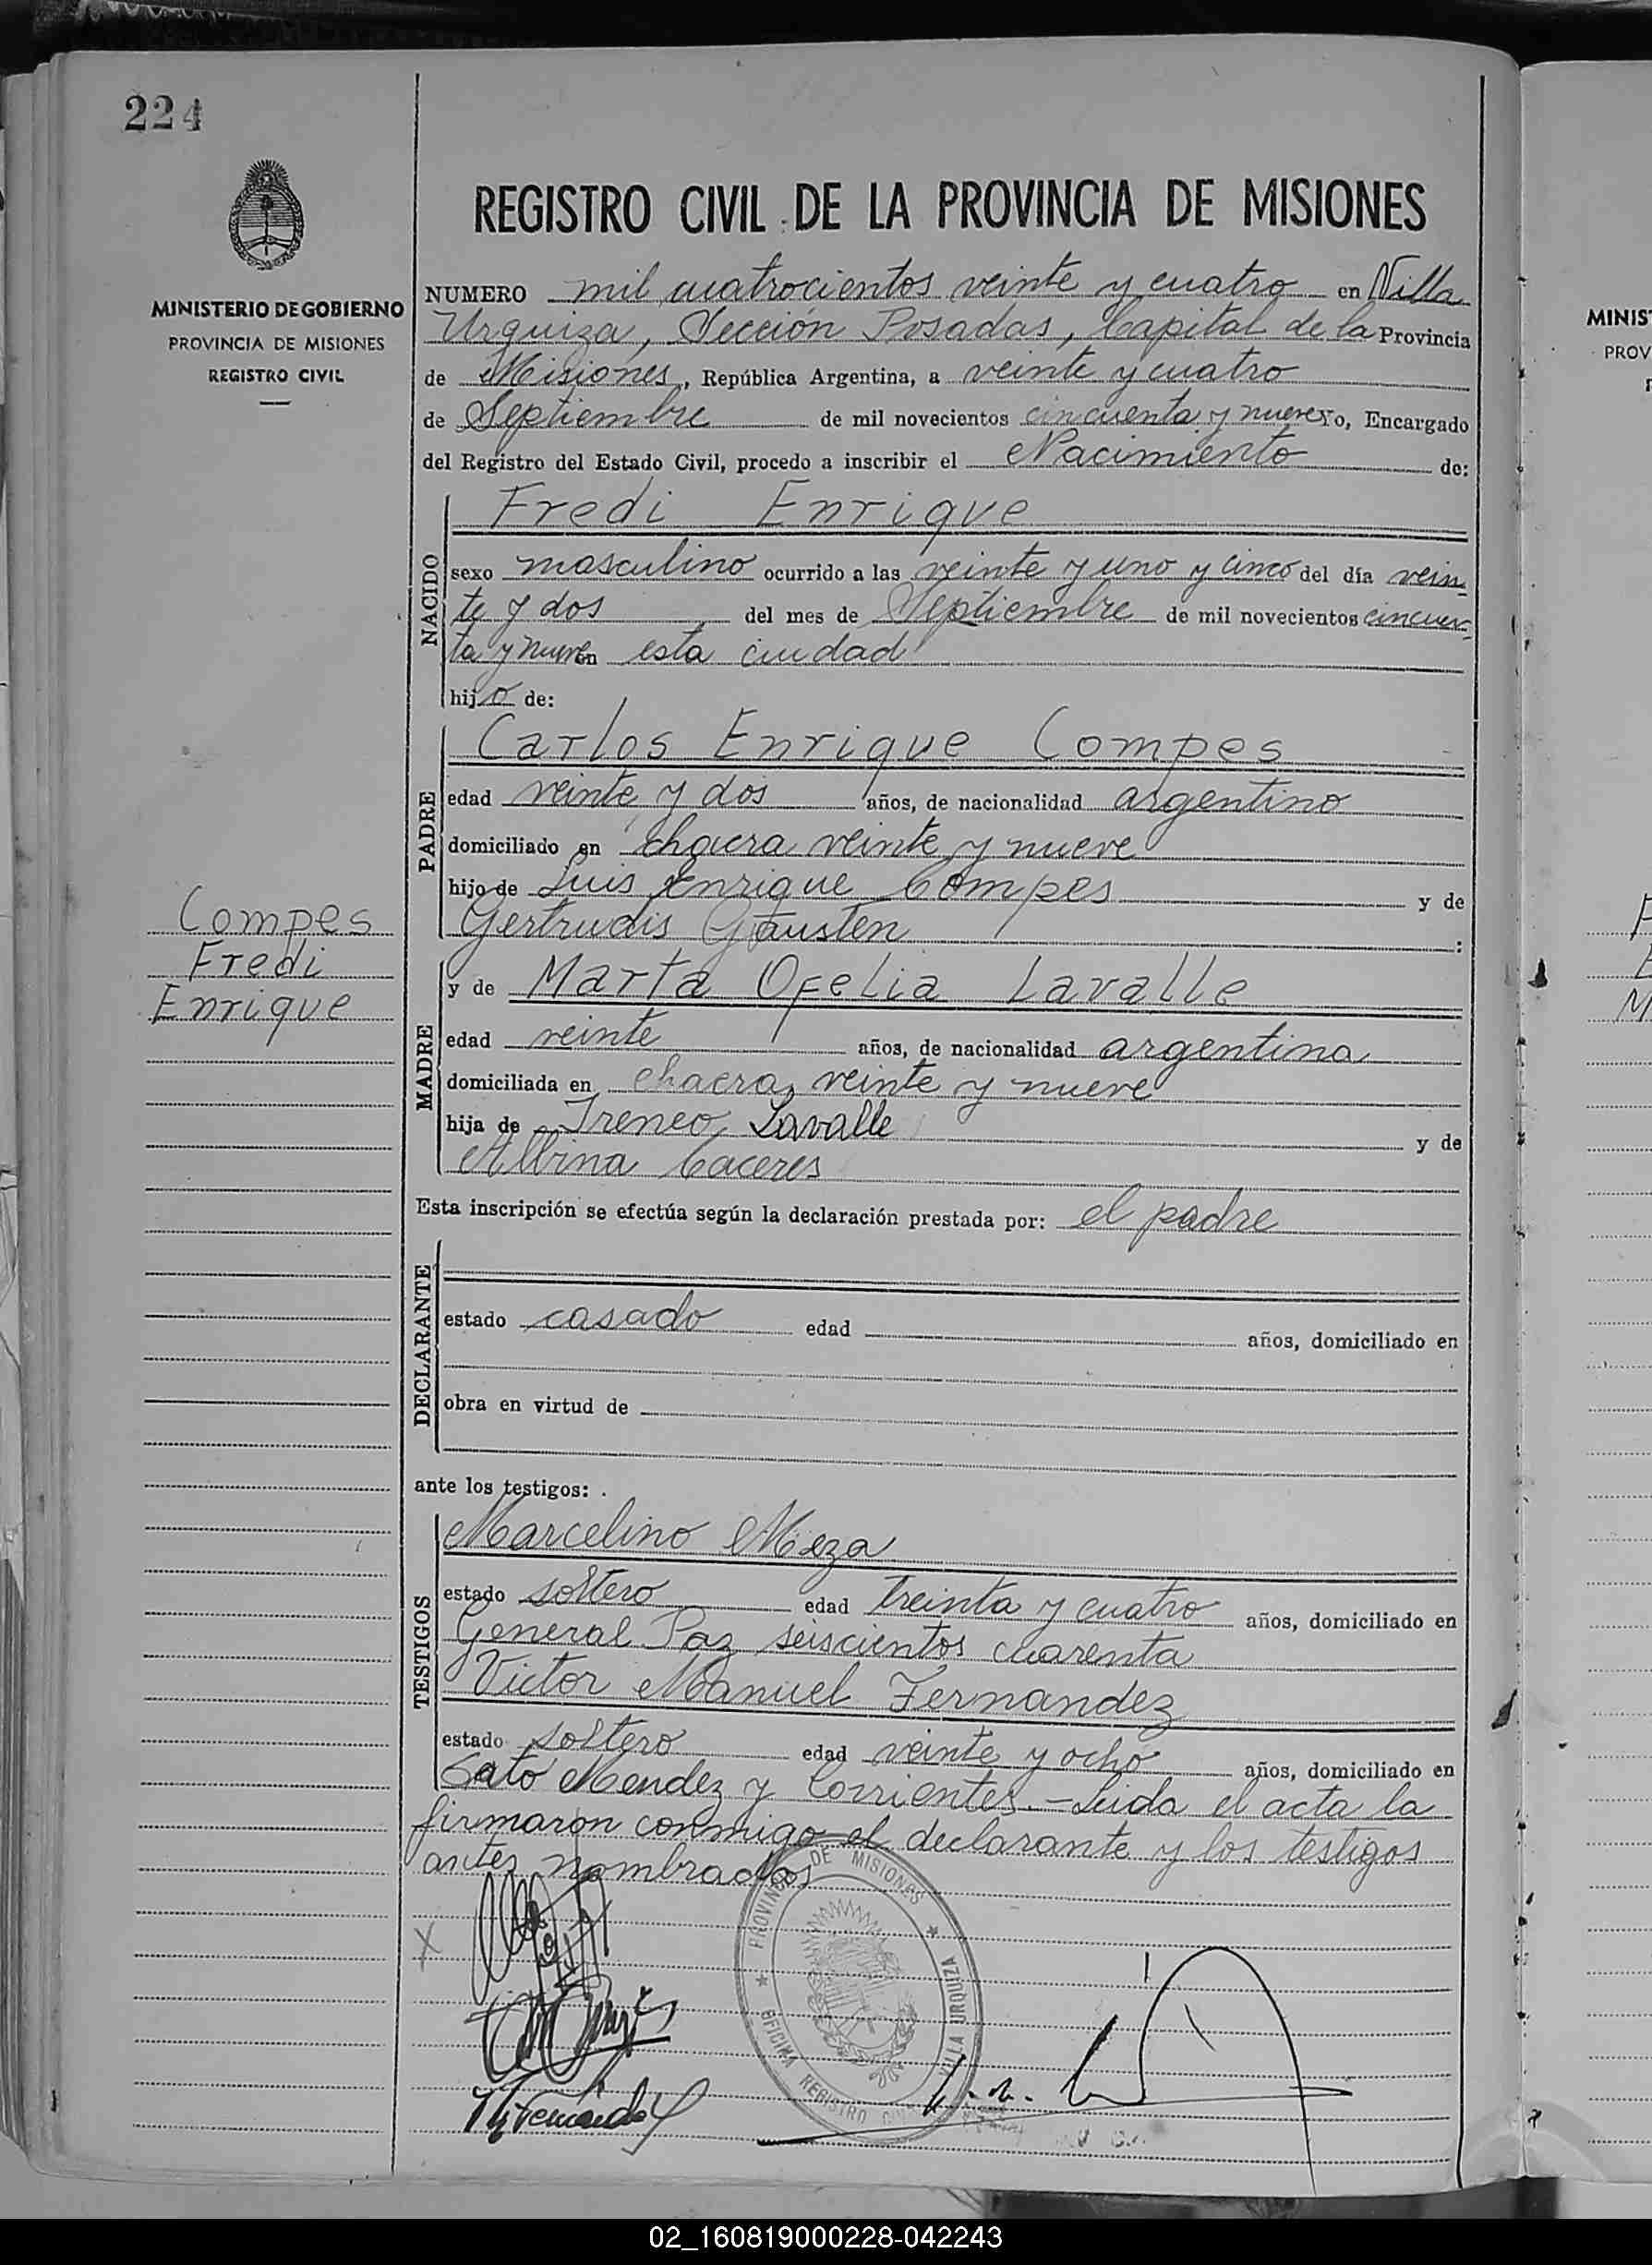 224
REGISTRO CIVIL DE LA PROVINCIA DE MISIONES
MINISTERIO DE GOBIERNO
PROVINCIA DE MISIONES
REGISTRO CIVIL
NUMERO mil cuatrocientos veinte y cuatro en Villa
Urquiza, Sección Posadas, Capital de la Provincia
de Misiones, República Argentina, a veinte y cuatro
de Septiembre de mil novecientos cincuenta y nueve yo, Encargado
del Registro del Estado Civil, procedo a inscribir el Nacimiento de:
NACIDO
Fredi Enrique
sexo masculino ocurrido a las veinte y uno y cinco del día vein
te y dos del mes de Septiembre de mil novecientos cincuen
ta y nueve en esta ciudad
hijo de:
PADRE
Carlos Enrique Compes
edad veinte y dos años, de nacionalidad argentino
domiciliado en chacra veinte y nueve
hijo de Luis Enrique Compes y de
Gertrudis :
Compes
Fredi
Enrique
MADRE
y de Marta Ofelia Lavalle
edad veinte años, de nacionalidad argentina
domiciliada en chacra veinte y nueve
hija de Ireneo Lavalle y de
Albina Caceres
Esta inscripción se efectúa según la declaración prestada por: el padre
DECLARANTE
estado casado edad años, domiciliado en
obra en virtud de
ante los testigos:
TESTIGOS
Marcelino Meza
estado soltero edad treinta y cuatro años, domiciliado en
General Paz seiscientos cuarenta
Victor Manuel Fernandez
estado soltero edad veinte y ocho años, domiciliado en
Mendez y Corrientes.- Leida el acta la
firmaron conmigo el declarante y los testigos
antes nombrados
PROVINCIA DE MISIONES
OFICINA REGISTRO CIVIL
VILLA URQUIZA
MINIS
PROV
02_160819000228-042243